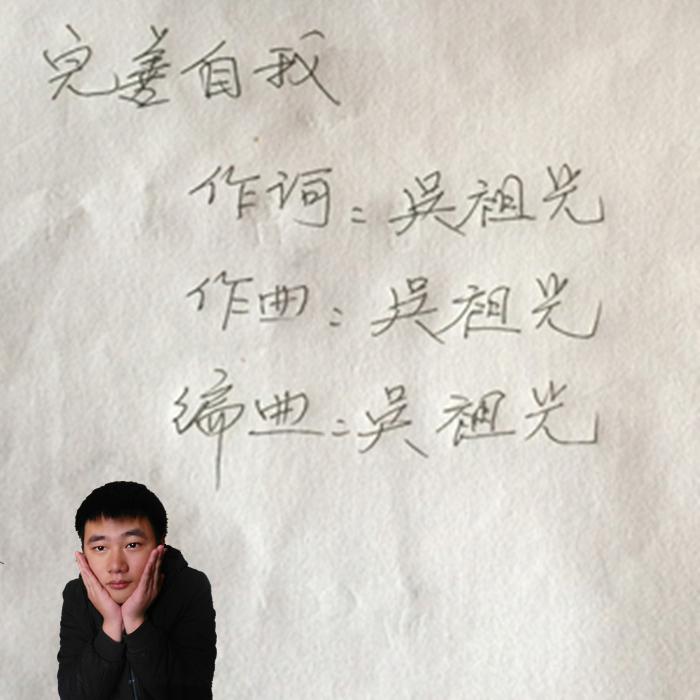 完善自我
作词：吴祖光
作曲：吴祖光
编曲：吴祖光